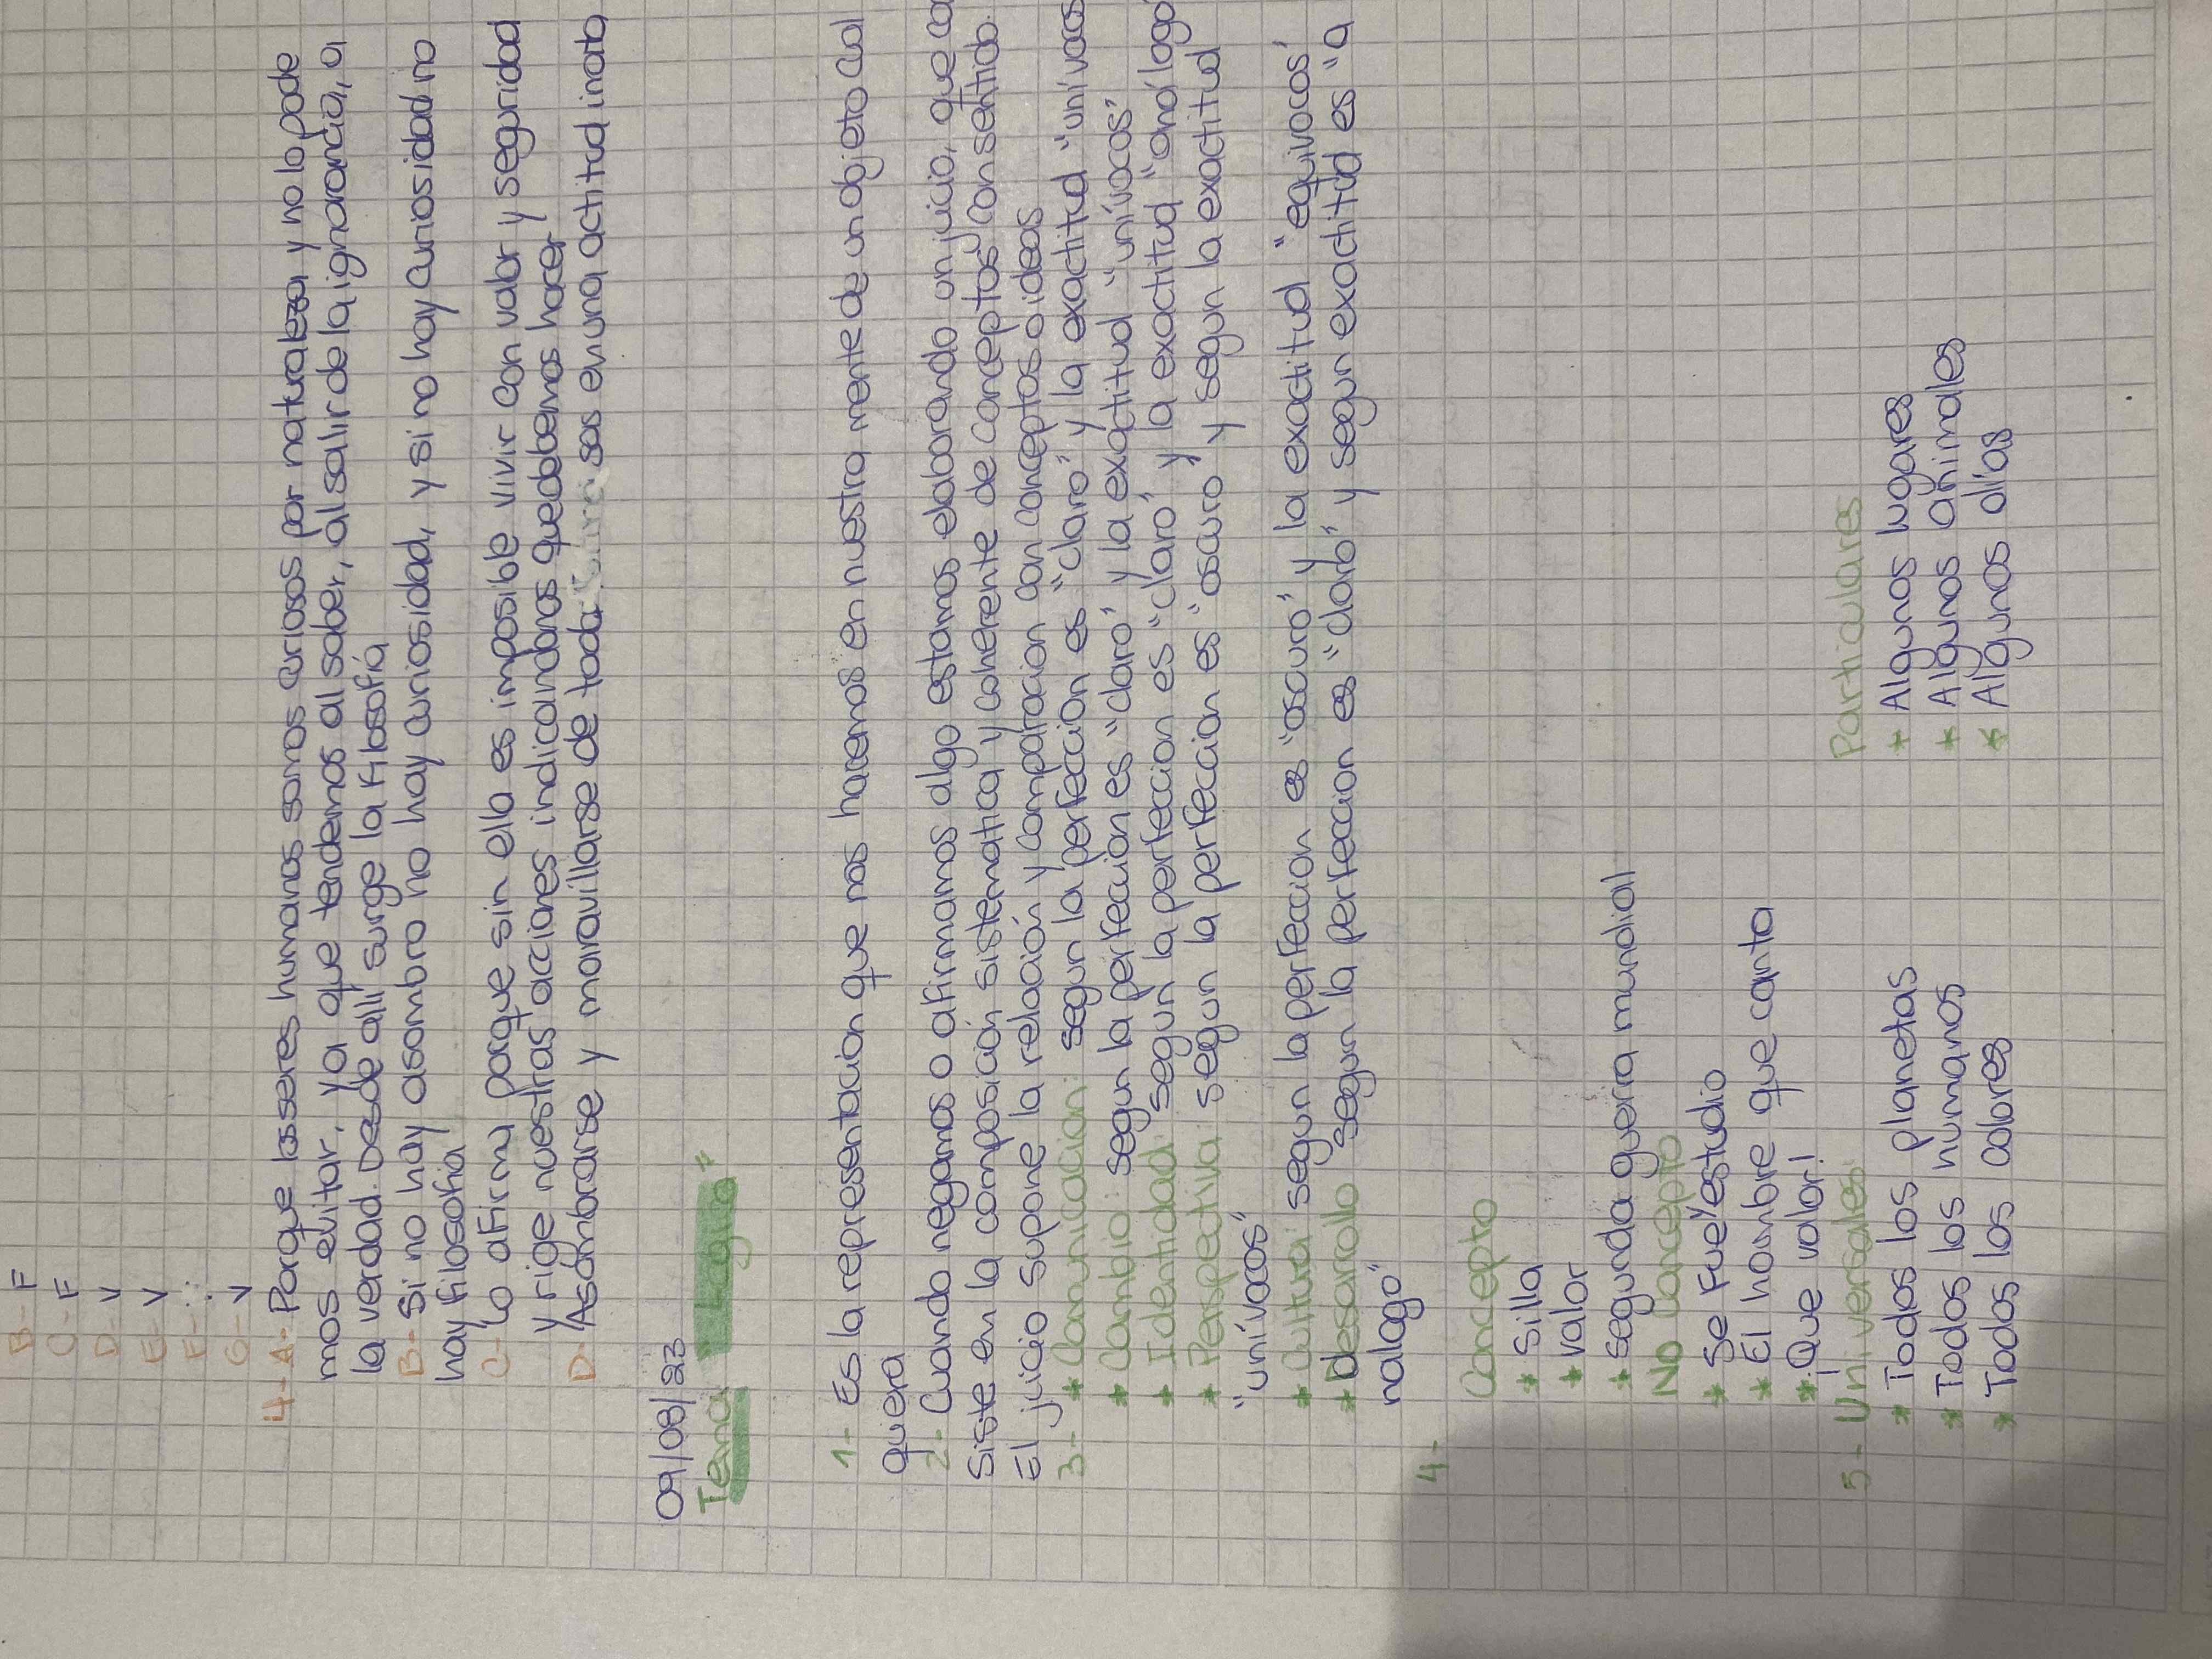 B- F
C- F
D- V
E- V
F-
G- V
4- A- Porque los seres humanos somos curiosos por naturaleza y no lo pode
mos evitar, ya que tendemos al saber, al salir de la ignorancia, a
la verdad. Desde alli surge la filosofía
B- Si no hay asombro no hay curiosidad, y si no hay curiosidad no
hay filosofia
C- Lo afirma porque sin ella es imposible vivir con valor y seguridad
y rige nuestras acciones indicandonos que debemos hacer
D- Asombrarse y maravillarse de todas cosas en una actitud innata
09/08/23
Tema "Logia"
1- Es la representacion que nos hacemos en nuestra mente de un objeto cual
quiera
2- Cuando negamos o afirmamos algo estamos elaborando un juicio, que con
siste en la composición sistematica y coherente de conceptos, con sentido.
El juicio supone la relación y comparacion con conceptos o ideas
3- * Comunicacion: segun la perfeccion es "claro" y la exactitud "unívocos
* Cambio: segun la perfeccion es "claro" y la exactitud "unívocos"
* Identidad: segun la perfeccion es "claro" y la exactitud "analogo
* Perspectiva: segun la perfeccion es "oscuro" y segun la exactitud
"unívocos"
* Cultura: segun la perfeccion es "oscuro" y la exactitud "equivocos"
* Desarollo segun la perfeccion es "claro" y segun exactitud es "a
nalogo"
4-
Concepto
* Silla
* Valor
* segunda guerra mundial
No concepto
* Se fue y estudio
* El hombre que canta
* ¡Que valor!
5- Universales
* Todos los planetas
* Todos los humanos
* Todos los colores
Particulares
* Algunos lugares
* Algunos animales
* Algunos días